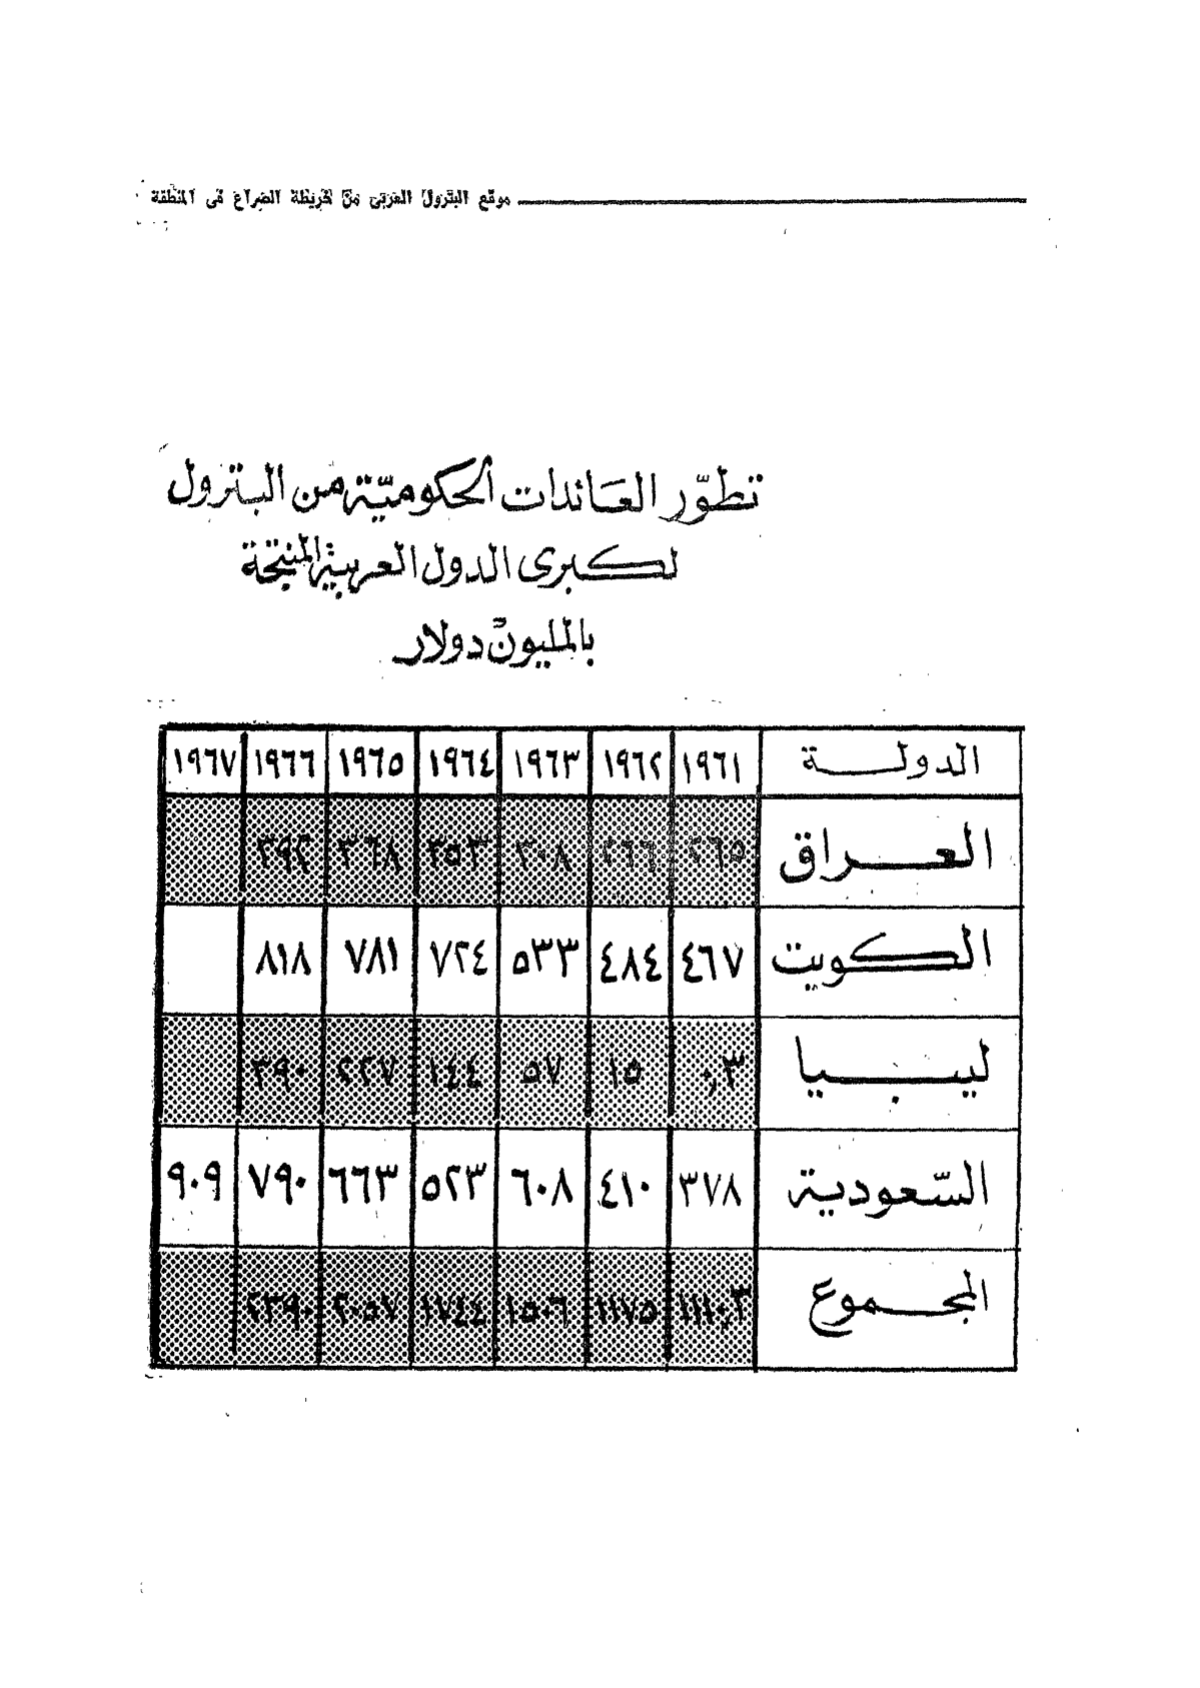 موقع البترول العربى من خريطة الصراع فى المنطقة
تطوّر العائدات الحكوميّة من البترول
لكبرى الدول العربية المنتجة
بالمليون دولار
الدولة ١٩٦١ ١٩٦٢ ١٩٦٣ ١٩٦٤ ١٩٦٥ ١٩٦٦ ١٩٦٧
العراق ٢٦٥ ٢٦٦ ٣٠٨ ٣٥٣ ٣٦٨ ٣٩٢
الكويت ٤٦٧ ٤٨٤ ٥٣٣ ٧٢٤ ٧٨١ ٨١٨
ليبيا ٠,٣ ١٥ ٥٧ ١٤٤ ٢٢٧ ٣٩٠
السّعودية ٣٧٨ ٤١٠ ٦٠٨ ٥٢٣ ٦٦٣ ٧٩٠ ٩٠٩
المجموع ١١١٠,٣ ١١٧٥ ١٥٠٦ ١٧٤٤ ٢٠٥٧ ٢٣٩٠